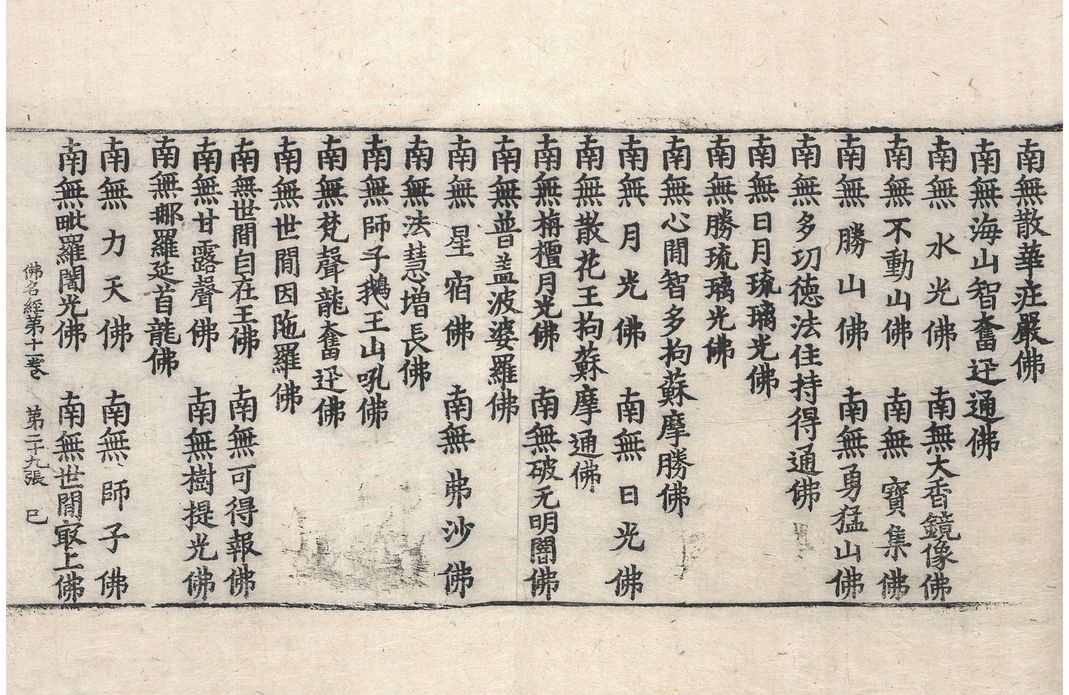 南無散華庄嚴佛
南無海山智奮迅通佛
南無水光佛 南無大香鏡像佛
南無不動山佛 南無寶集佛
南無勝山佛 南無勇猛山佛
南無多㓛德法住持得通佛
南無日月琉璃光佛
南無勝琉璃光佛
南無心間智多拘蘇摩勝佛
南無月光佛 南無日光佛
南無散花王拘蘇摩通佛
南無栴檀月光佛 南無破无明闇佛
南無普盖波婆羅佛
南無星宿佛 南無弗沙佛
南無法慧增長佛
南無師子鵝王山吼佛
南無梵聲龍奮迅佛
南無世間因陁羅佛
南無世間自在王佛 南無可得報佛
南無甘露聲佛 南無樹提光佛
南無那羅延首龍佛
南無力天佛 南無師子佛
南無毗羅闍光佛 南無世間㝡上佛
佛名經第十一卷 第二十九張 巳